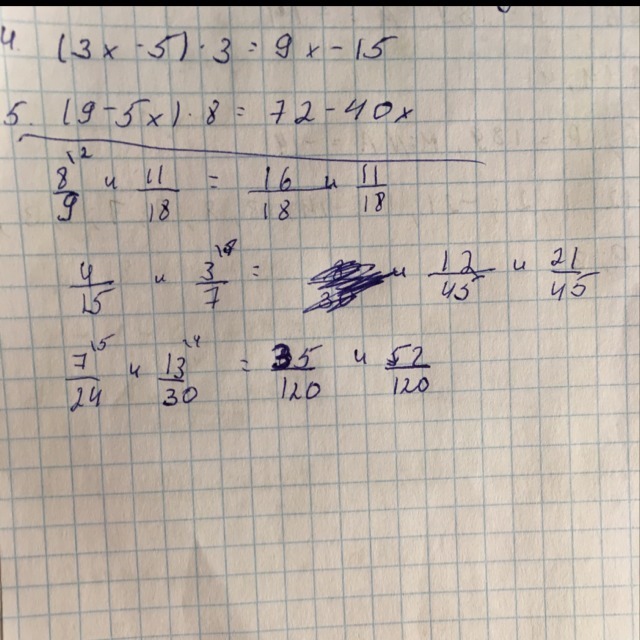 4. (3x - 5) · 3 = 9x - 15
5. (9 - 5x) · 8 = 72 - 40x
8/9 \2 и 11/18 = 16/18 и 11/18
4/15 и 3/7 = и 12/45 и 21/45
7/24 \5 и 13/30 \4 = 35/120 и 52/120